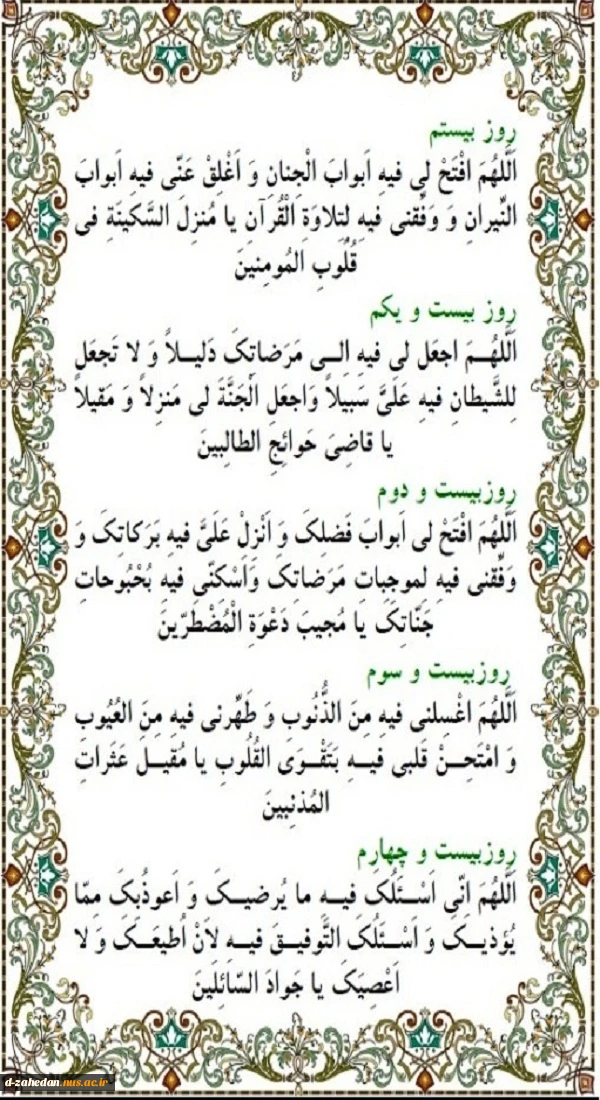 روز بیستم
اَللّهُمَ افْتَحْ لی فیهِ اَبوابَ الْجِنانِ وَ اَغْلِقْ عَنّی فیهِ اَبوابَ
النّیرانِ وَ وَفِّقنی فیهِ لِتِلاوَةِ الْقُرآنِ یا مُنزِلَ السَّکینَةِ فی
قُلُوبِ المُومِنینَ
روز بیست و یکم
اَللّهُمَ اجعَل لی فیهِ الی مَرَضاتِکَ دَلیلاً وَ لا تَجعَل
لِلشَّیطانِ فیهِ عَلَیَّ سَبیلاً وَاجعَلِ الْجَنَّةَ لی مَنزِلاً وَ مَقیلاً
یا قاضِیَ حَوائِجِ الطالِبینَ
روزبیست و دوم
اَللّهُمَ افْتَحْ لی اَبوابَ فَضلِکَ وَ اَنْزِلْ عَلَیَّ فیهِ بَرَکاتِکَ وَ
وَفِّقنی فیهِ لموجِباتِ مَرَضاتِکَ وَاَسْکنّی فیهِ بُحْبُوحاتِ
جَنّاتِکَ یا مُجیبَ دَعْوَةِ الْمُضْطَرّینَ
روزبیست و سوم
اَللّهُمَ اغْسِلنی فیهِ مِنَ الذُّنُوبِ وَ طَهِّرنی فیهِ مِنَ العُیُوبِ
وَ امْتَحِنْ قَلبی فیهِ بَتَقْوَی القُلُوبِ یا مُقیلَ عَثَراتِ
المُذنِبینَ
روزبیست و چهارم
اَللّهُمَ انّی اَسْئَلُکَ فیهِ ما یُرضیکَ وَ اَعوذُبِکَ مِمّا
یُؤذیکَ وَ اَسْئَلُکَ التَّوفیقَ فیهِ لاَنْ اُطیعَکَ وَ لا
اَعْصِیَکَ یا جَوادَ السّائِلَینَ
d-zahedan.nus.ac.ir